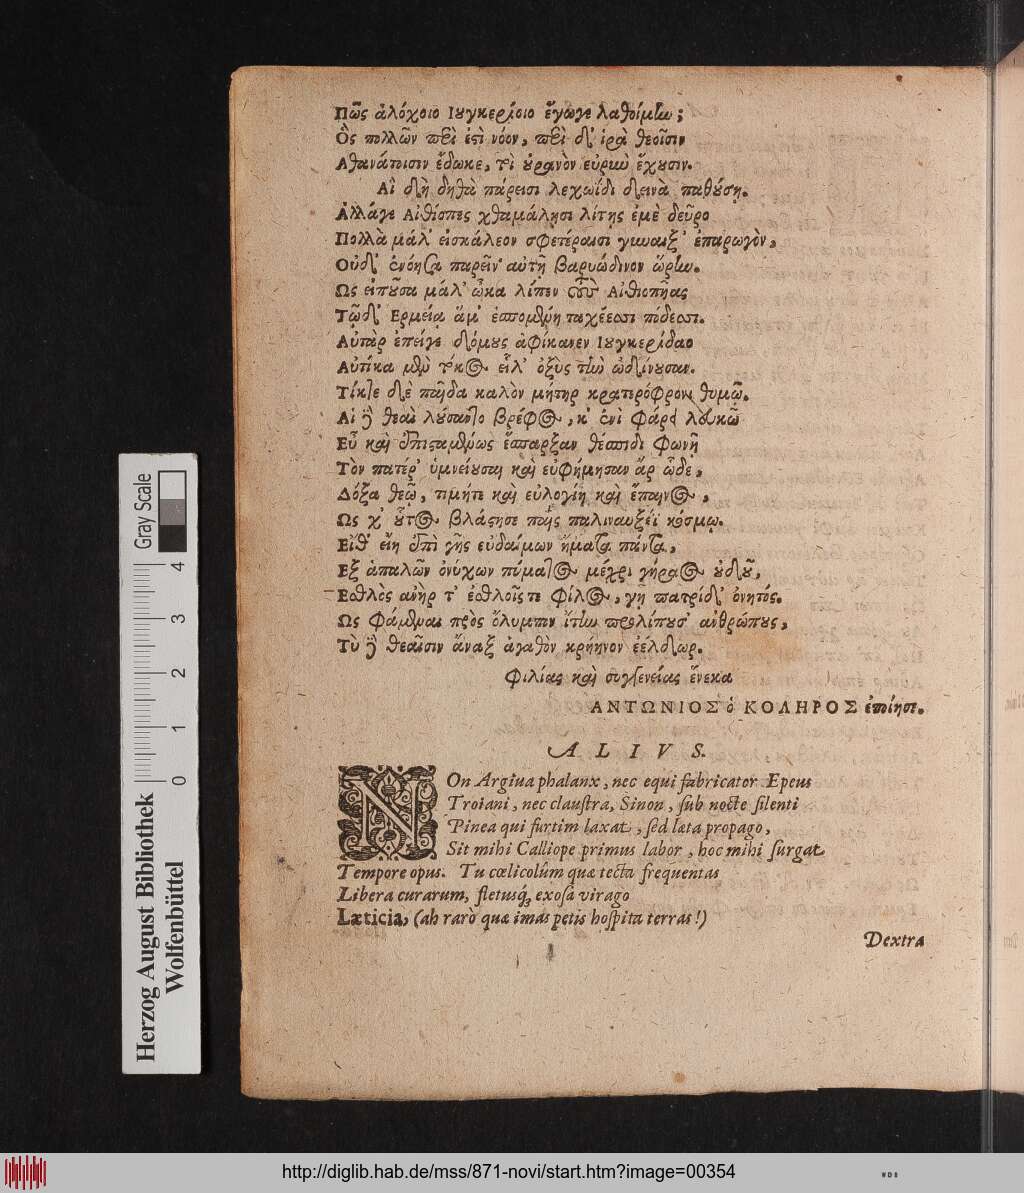 Πῶς ἀλόχοιο Ιουγκερίοιο ἔγωγε λαθοίμην;
Ὃς πολλῶν περὶ ἐστὶ νόον, περὶ δ' ἱρὰ θεοῖσιν
Αθανάτοισιν ἔδωκε, τὶ οὐρανὸν εὐρὺν ἔχουσιν.
Αἲ δὴ δηθὰ πάρεισι λεχωίδι δεινὰ παθούσῃ.
Αλλάγε Αἰθίοπες χθαμάλῃσι λίτῃς ἐμὲ δεῦρο
Πολλὰ μάλ' εἰσκάλεον σφετέραισι γυναιξ' ἐπαρωγὸν,
Οὐδ' ἐνόησα παρεῖν' αὐτῇ βαρυώδινον ὥρην.
Ως εἰποῦσα μάλ' ὦκα λίπεν τοὺς Αἰθιοπῆας
Τῷδ' Ερμείᾳ ἅμ' ἑσπομένη ταχέεσσι πόδεσσι.
Αὐτὰρ ἐπείγε δόμους ἀφίκανεν Ιουγκερίδαο
Αὐτίκα μὲν τόκος εἷλ' ὀξὺς τὴν ὠδίνουσαν.
Τίκτε δὲ παῖδα καλὸν μήτηρ κρατερόφρονι θυμῷ.
Αἱ δὲ θεαὶ λύσαντο βρέφος, κ' ἐνὶ φάρει λευκῷ
Εὖ καὶ ἐπισταμένως ἔσπαρξαν θέσπιδι φωνῇ
Τὸν πατέρ' ὑμνείουσαι καὶ εὐφήμησαν ἄρ ὧδε,
Δόξα θεῷ, τιμήτε καὶ εὐλογίη καὶ ἔπαινος,
Ως χ' οὗτος βλάστησε παῆς παλιναυξέϊ κόσμῳ.
Εἴθ' εἴη ἐπὶ γῆς εὐδαίμων ἤματα πάντα,
Εξ ἁπαλῶν ὀνύχων πύματος μέχρι γήραος οὐδοῦ,
Εσθλὸς ανὴρ τ' ἐσθλοῖς τε φίλος, γῃ πατρίδ' ὀνητός.
Ως φάμεναι πρὸς ὄλυμπον ἴτην προλίπουσ' ανθρώπους,
Τὺ δὲ θεαῖσιν ἄναξ ἀγαθὸν κρήηνον ἐέλδωρ.
Φιλίας καὶ συγγενείας ἕνεκα
ΑΝΤΩΝΙΟΣ ὁ ΚΟΛΗΡΟΣ ἐποίησε.
ALIVS.
NOn Argiua phalanx, nec equi fabricator Epeus
Troiani, nec claustra, Sinon, sub nocte silenti
Pinea qui furtim laxat, sed læta propago,
Sit mihi Calliope primus labor, hoc mihi surgat
Tempore opus. Tu cœlicolûm quæ tecta frequentas
Libera curarum, fletusq́; exosa virago
Læticia, (ah rarò quæ imas petis hospita terras!)
Dextra
Gray Scale
0 1 2 3 4
Herzog August Bibliothek
Wolfenbüttel
http://diglib.hab.de/mss/871-novi/start.htm?image=00354